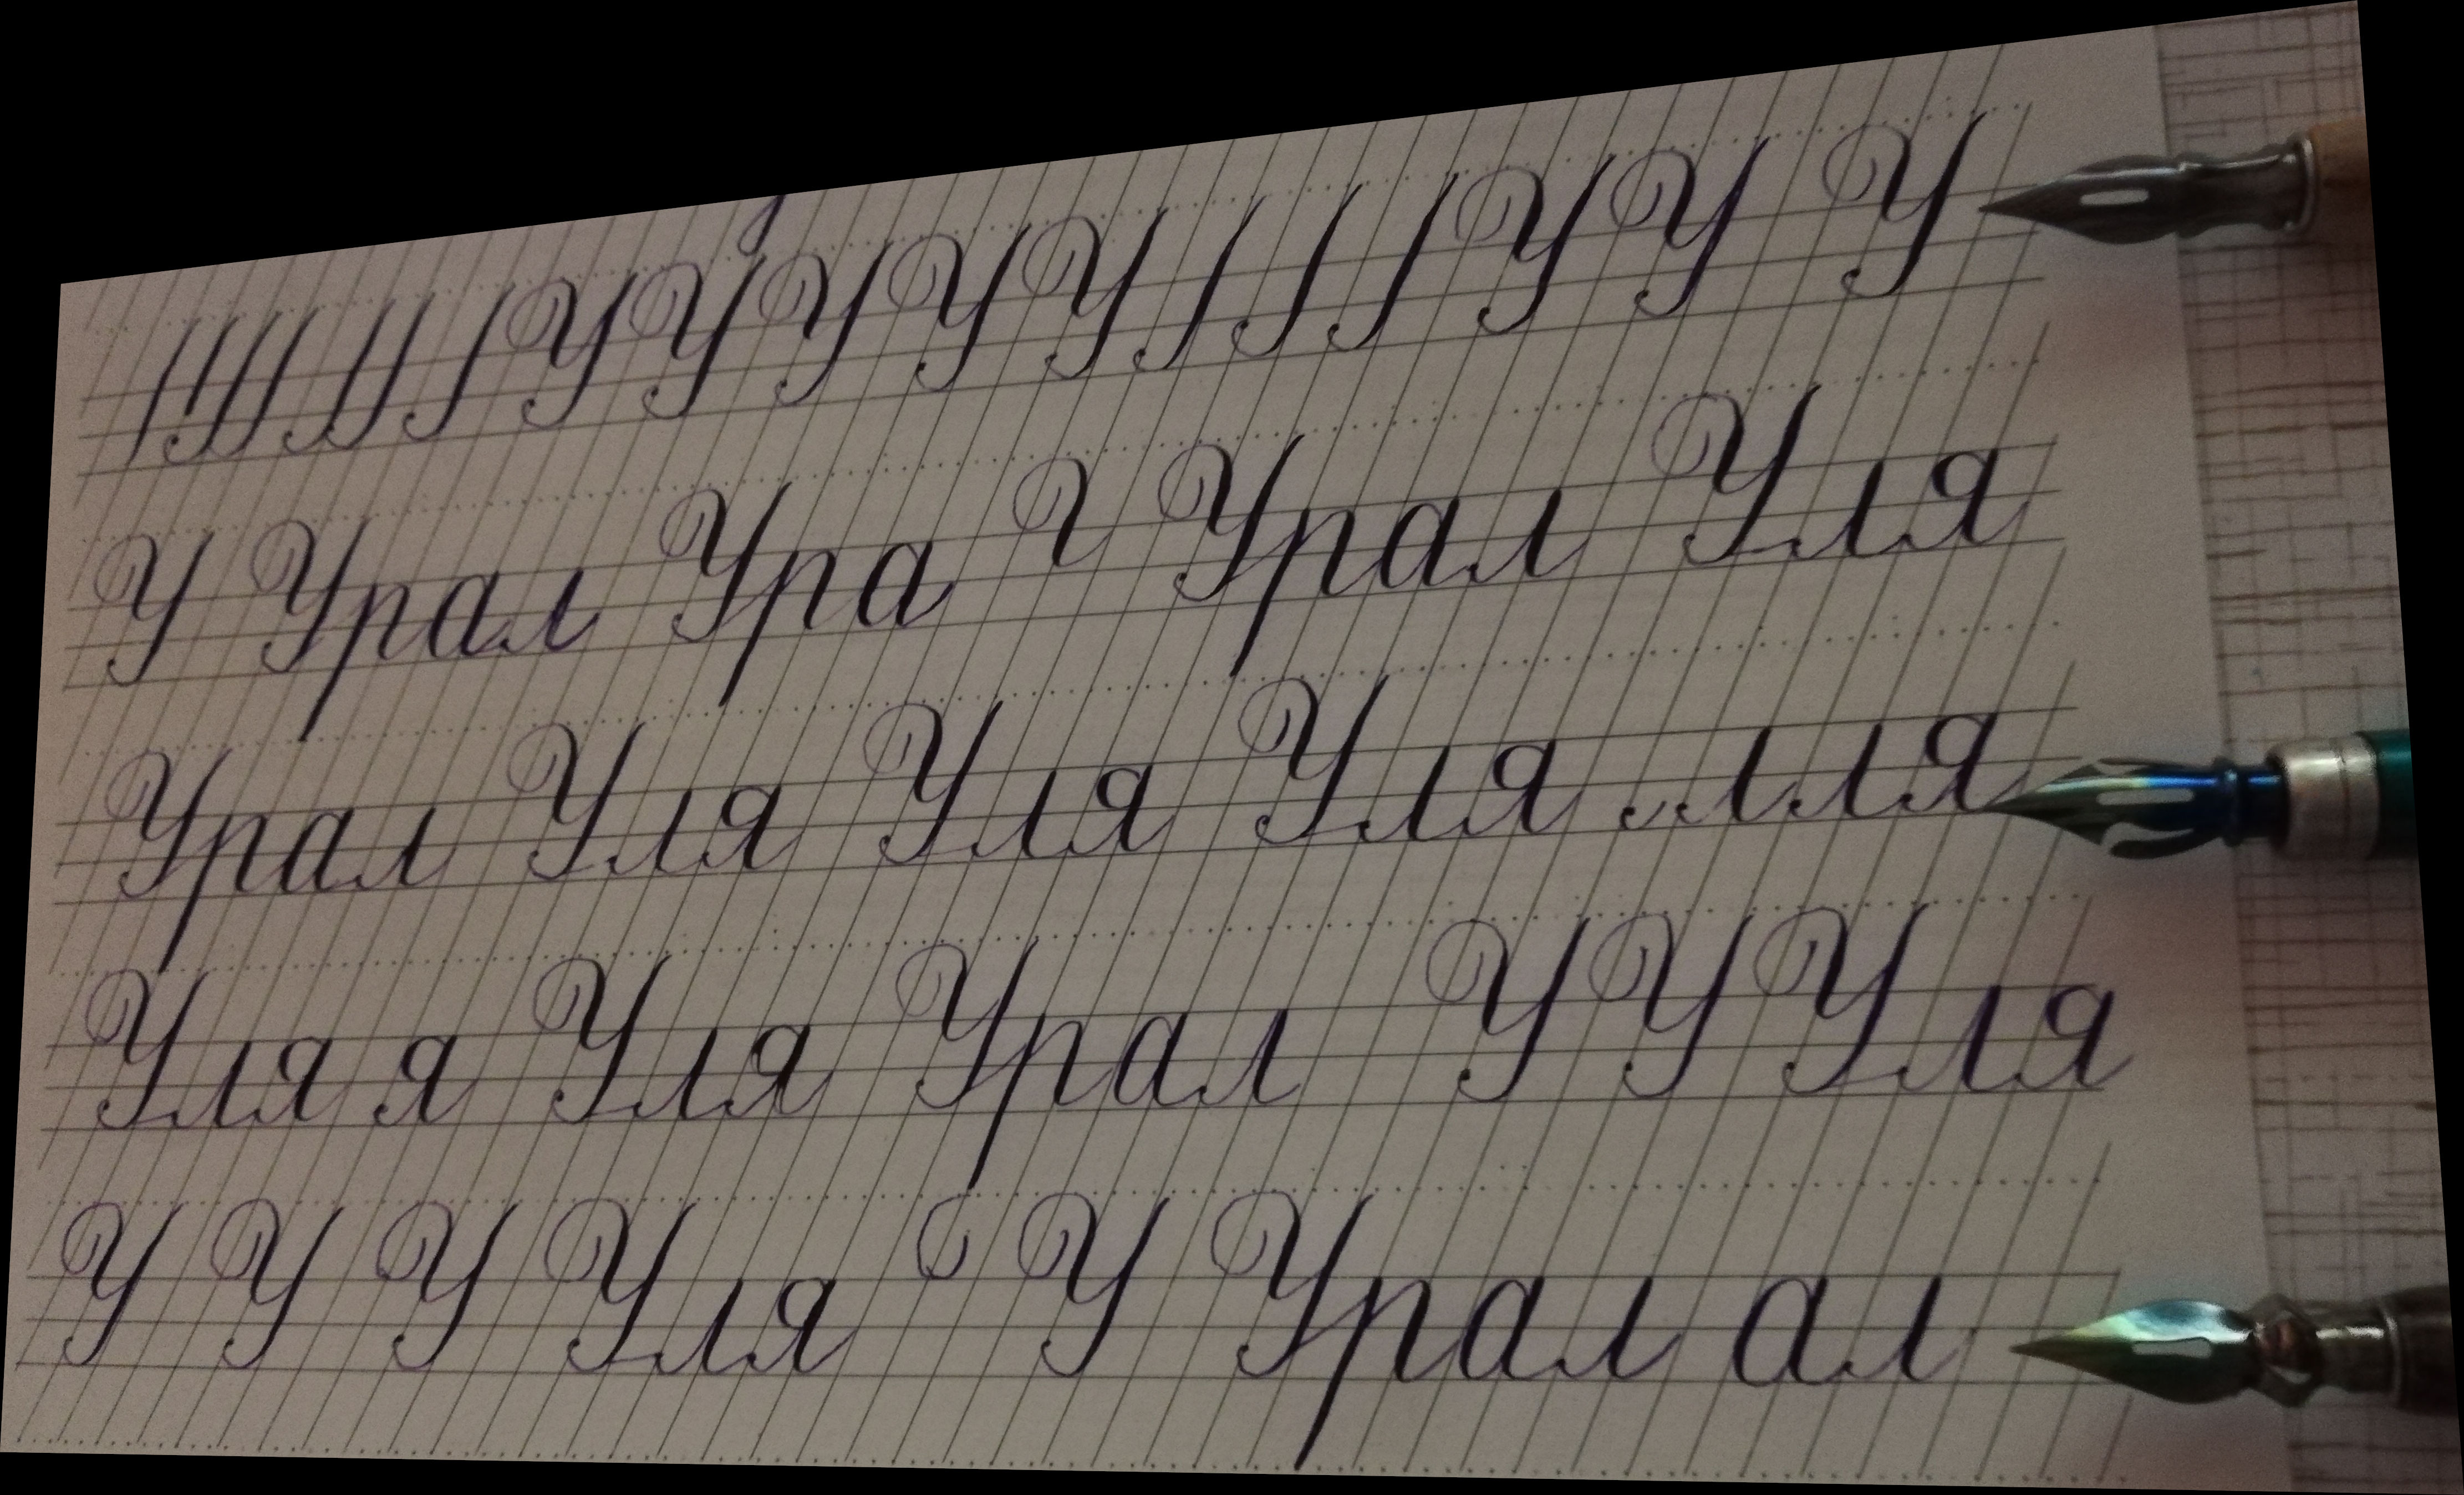 У У У У У У У У
У Урал Ура Урал Уля
Урал Уля Уля Уля лля
Уля я Уля Урал У У Уля
У У У Уля У Урал ал